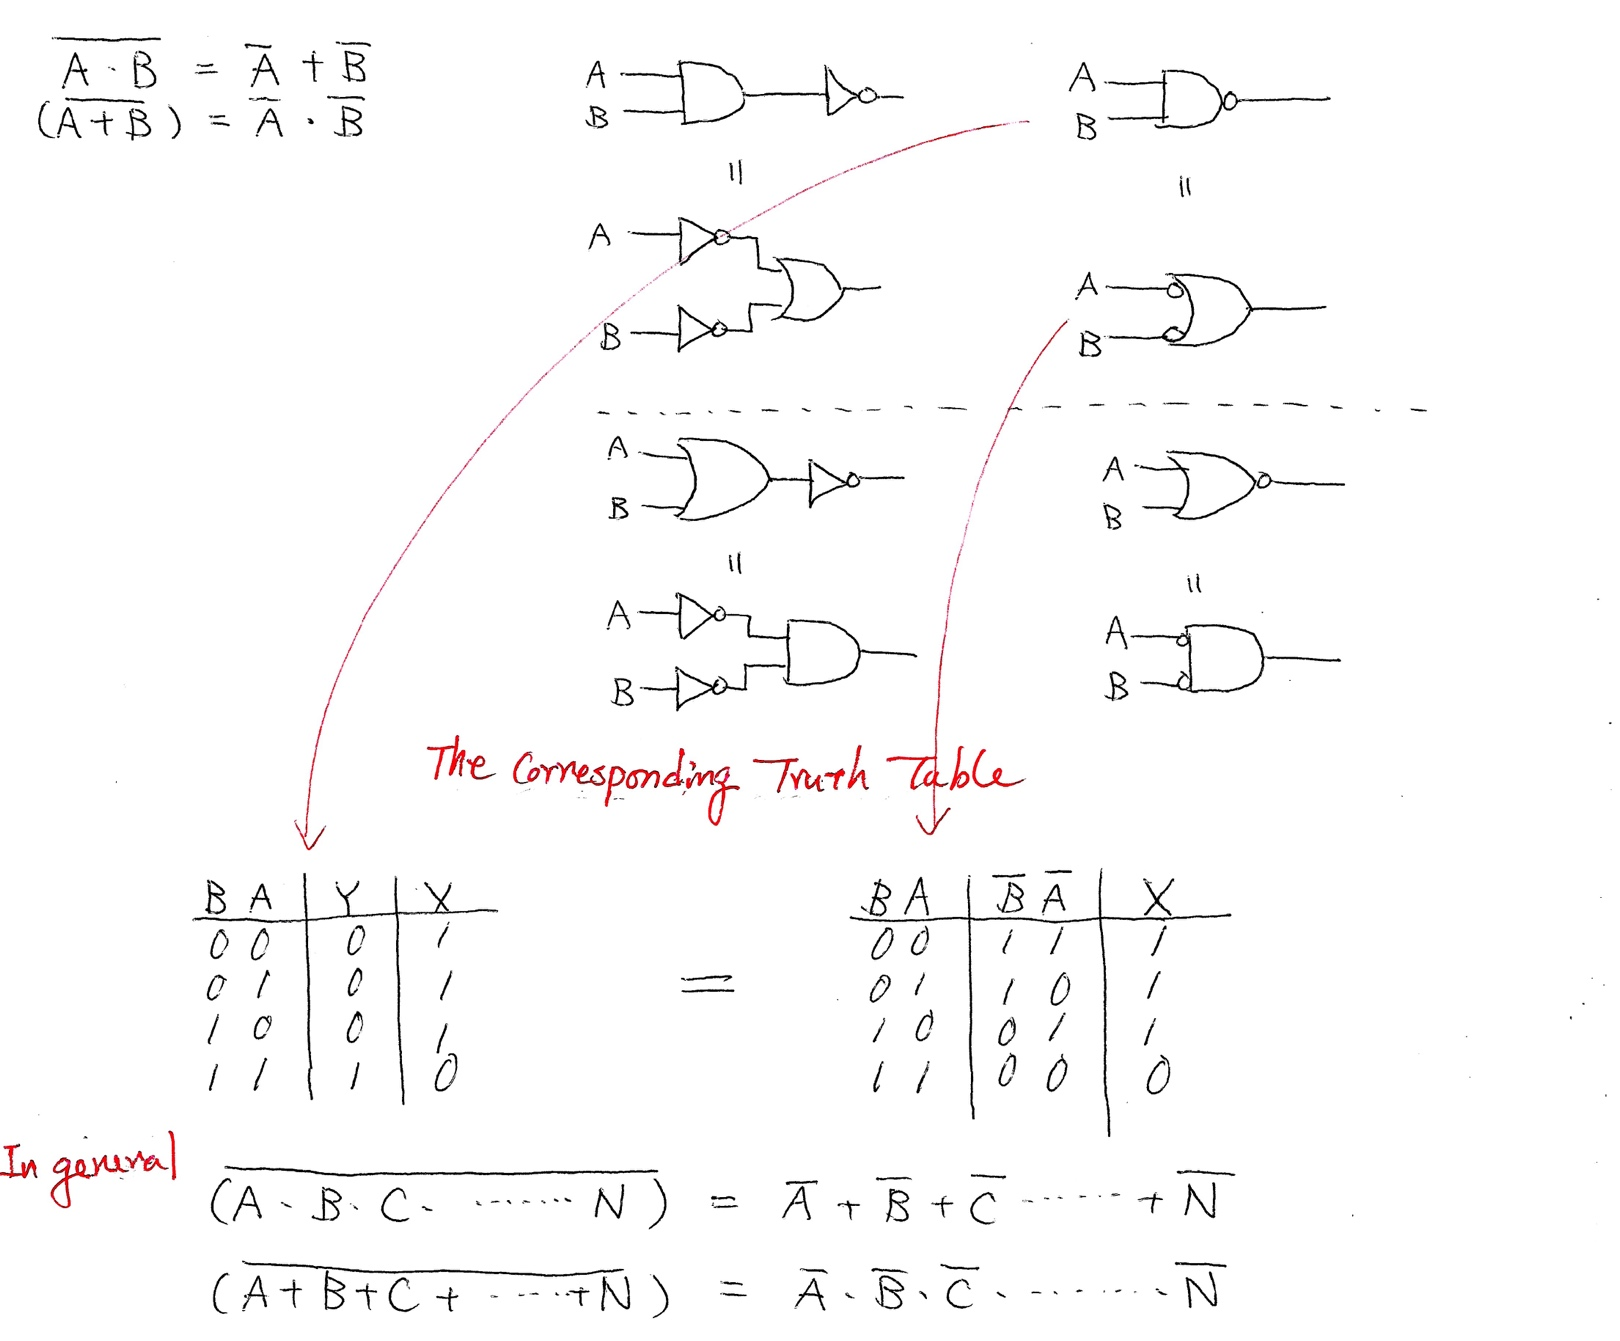 A̅ ̅·̅ ̅B̅ = A̅ + B̅
(A̅+̅B̅) = A̅ · B̅
A
B
A
B
=
=
A
B
A
B
A
B
A
B
=
=
A
B
A
B
The Corresponding Truth Table
B A Y X
0 0 0 1
0 1 0 1
1 0 0 1
1 1 1 0
=
B A B̅ A̅ X
0 0 1 1 1
0 1 1 0 1
1 0 0 1 1
1 1 0 0 0
In general
(A̅ ̅·̅ ̅B̅ ̅·̅ ̅C̅ ̅·̅ ̅.̅.̅.̅.̅.̅.̅ ̅N̅) = A̅ + B̅ + C̅ ...... + N̅
(A̅+̅B̅+̅C̅+̅ ̅.̅.̅.̅.̅.̅.̅ ̅+̅N̅) = A̅ · B̅ · C̅ · ........ N̅